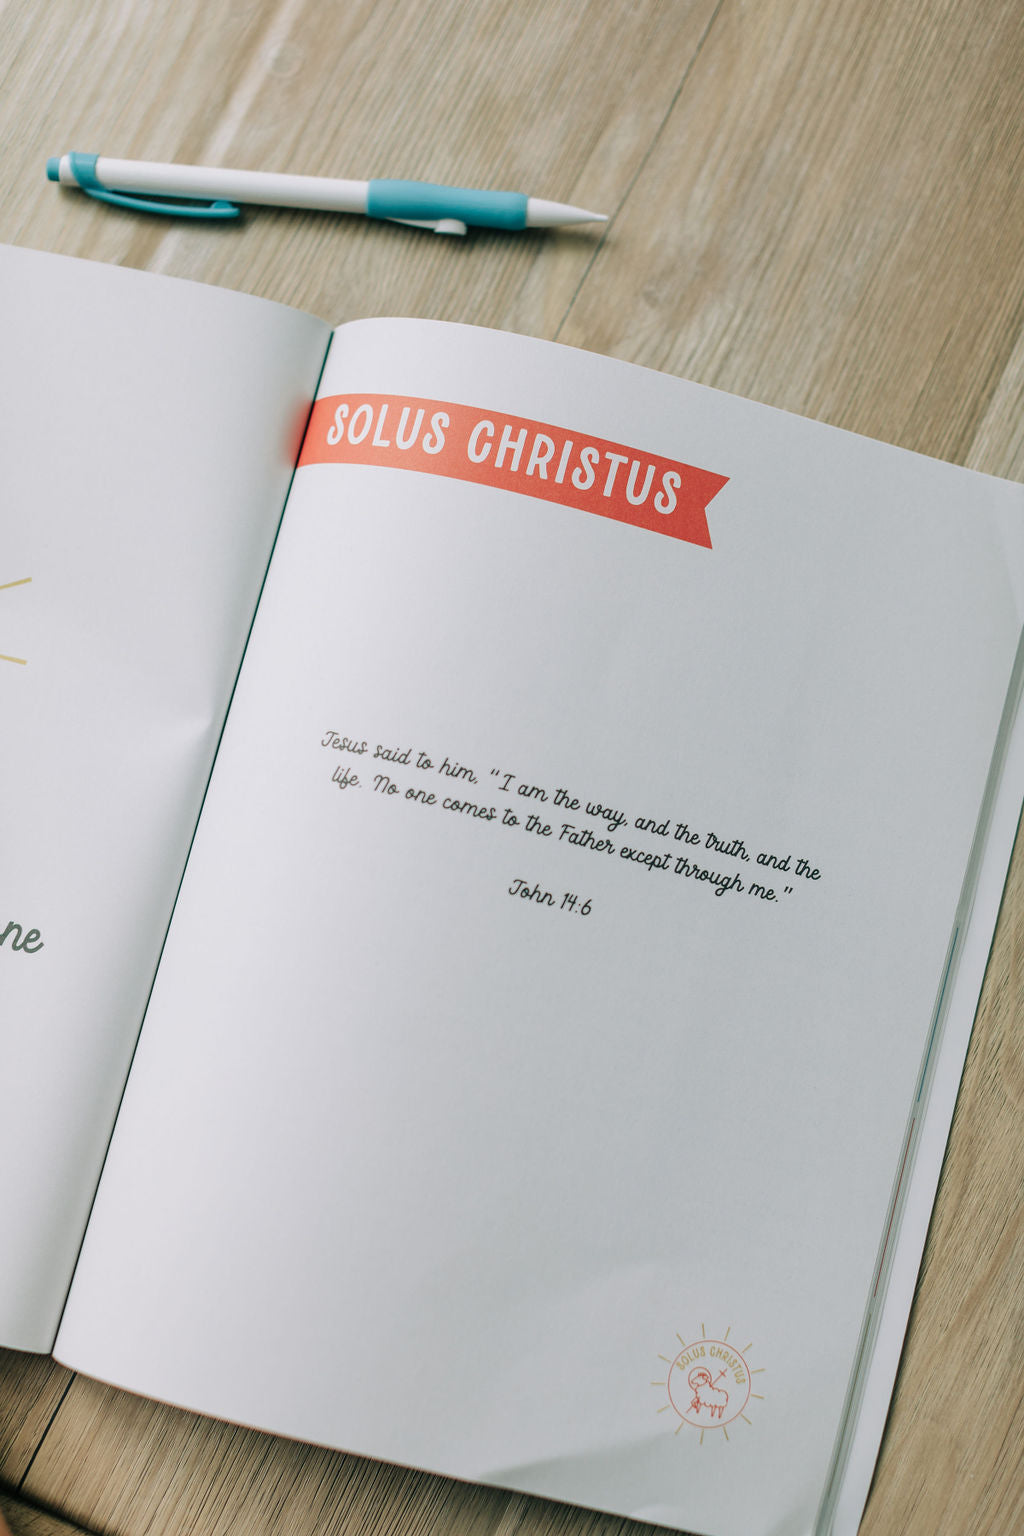 SOLUS CHRISTUS
Jesus said to him, "I am the way, and the truth, and the
life. No one comes to the Father except through me."
John 14:6
ne
SOLUS CHRISTUS